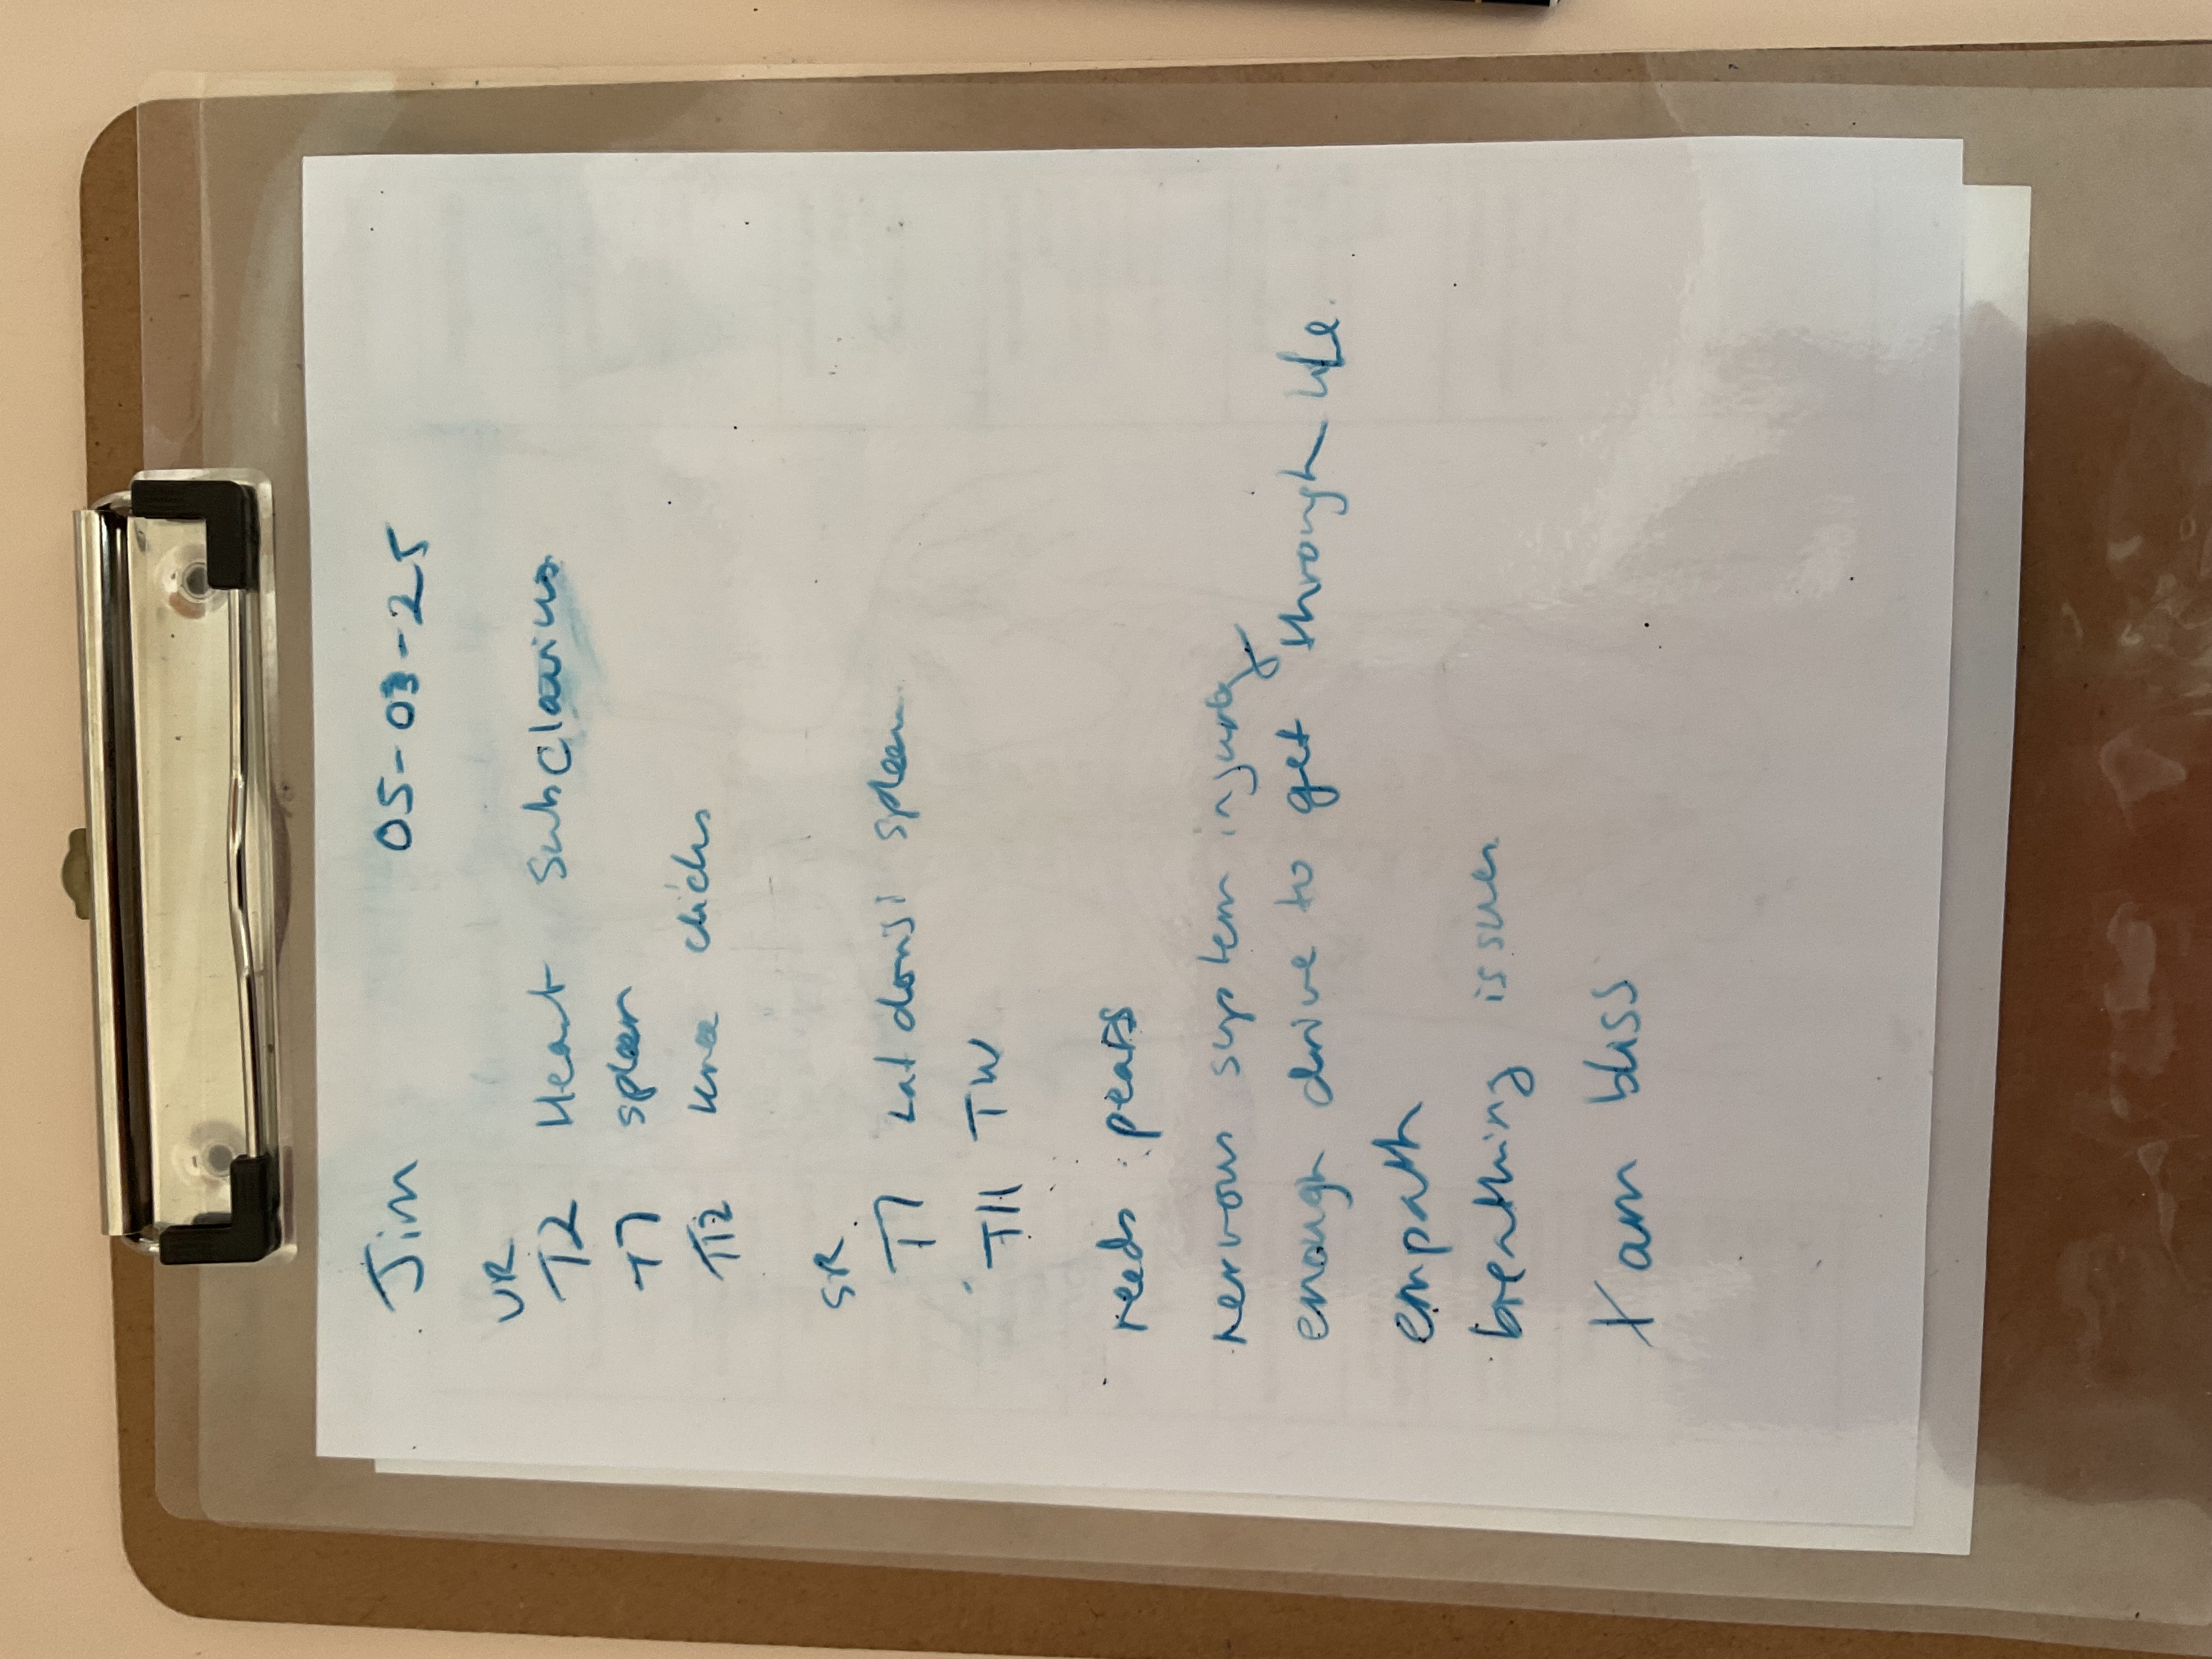 Jim 05-03-25
UR
T2 Heart Subclavius
T7 spleen
T12 knee clicks
SR
T7 Lat dorsi spleen
T11 TW
needs: pears
nervous system injury
enough drive to get through life.
empath
breathing issues
I am bliss